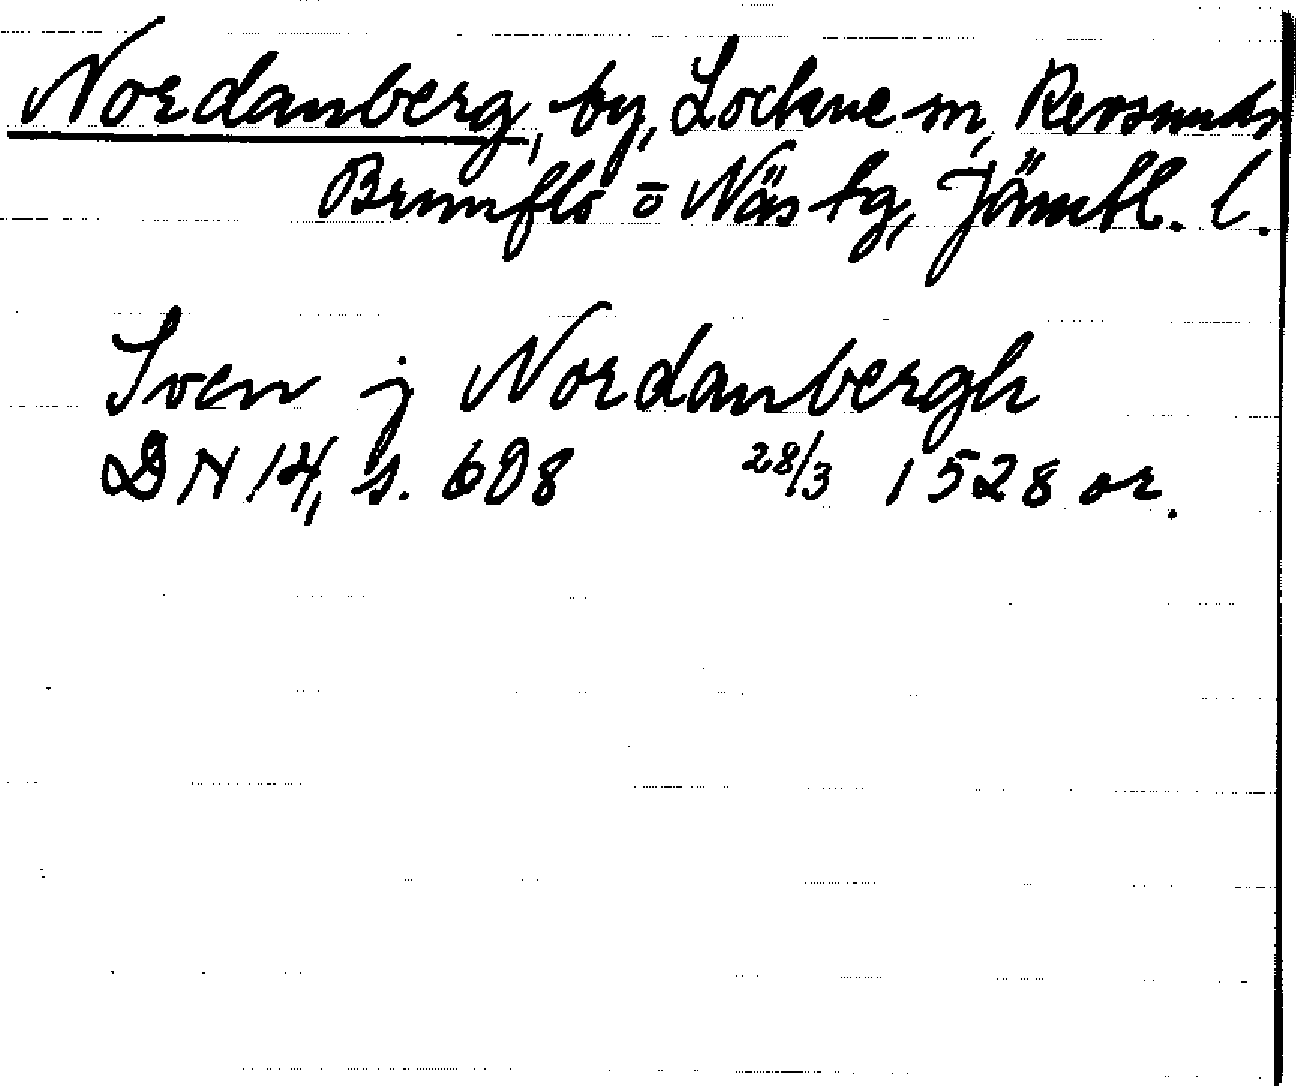 Nordanberg, by, Lockne sn, Revsunds
Brunflo o Näs tg, Jämtl. l.
Sven j Nordanbergh
DN 14, s. 608 28/3 1528 or.